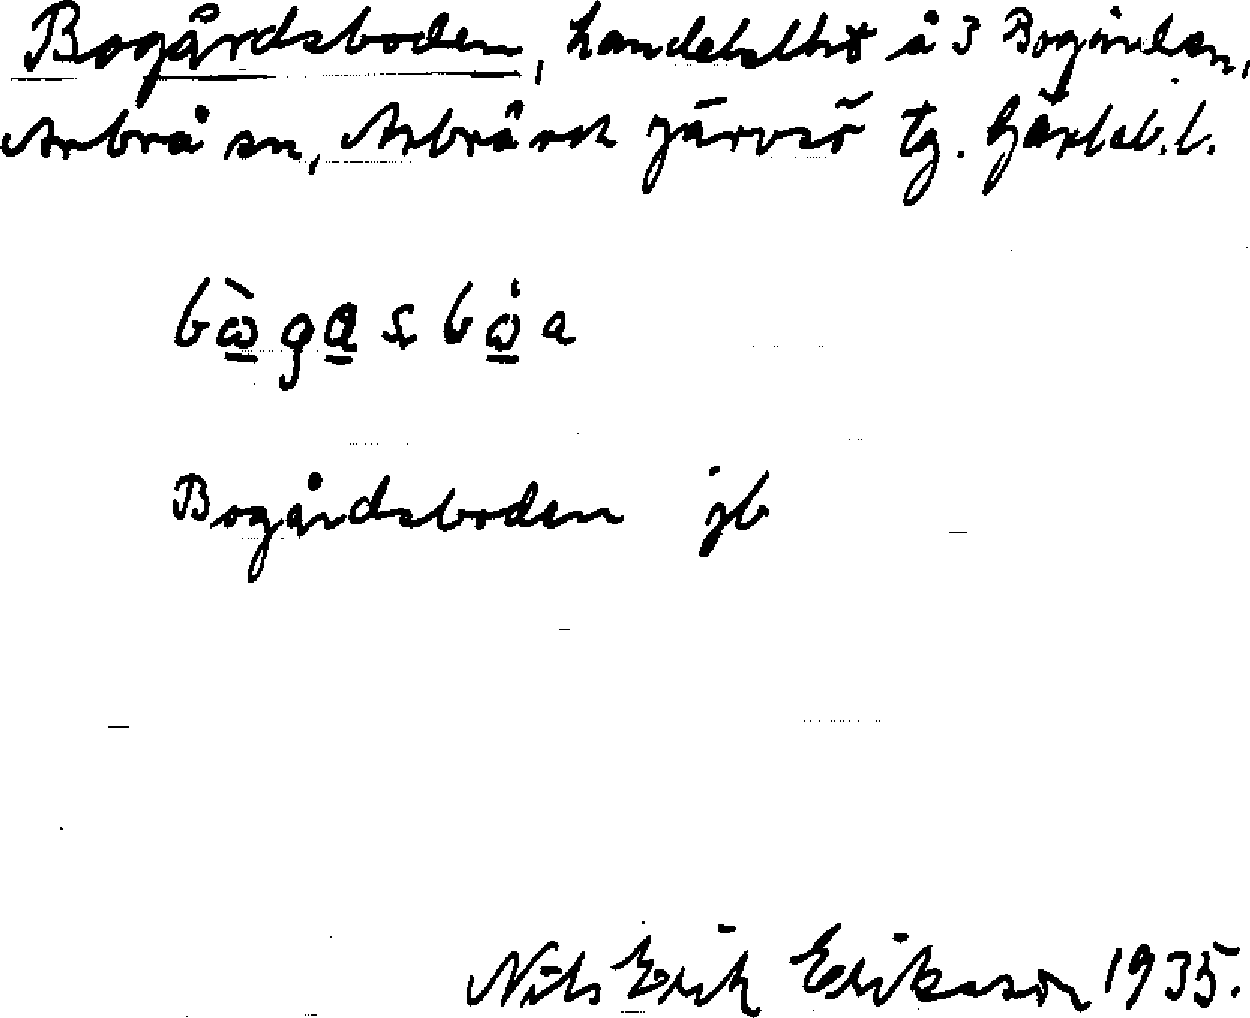 Bogårdsboden, handelslht å 3 Bogården,
Arbrå sn, Arbrå och Järvsö tg. Gävleb.l.
bò̲ga̲sbȯ̲a
Bogårdsboden jb
Nils Erik Eriksson 1935.